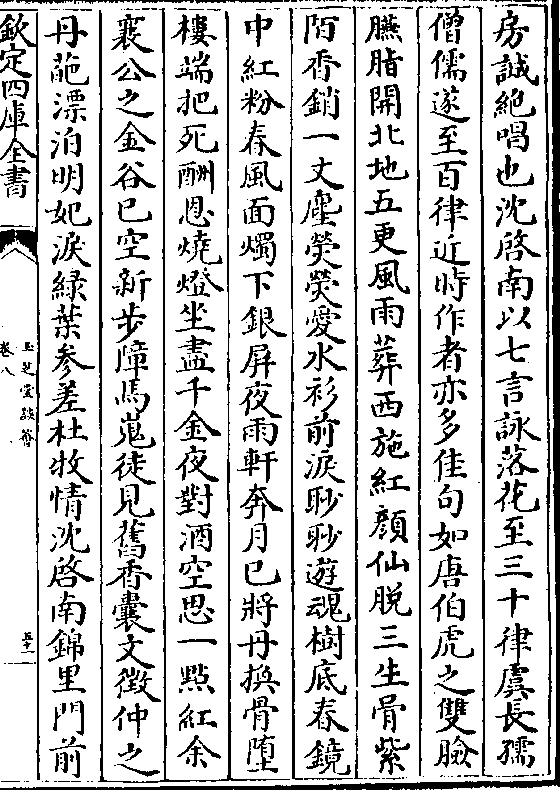 房誠絶唱也沈啓南以七言詠落花至三十律虞長孺
僧儒遂至百律近時作者亦多佳句如唐伯虎之雙臉
臙脂開北地五更風雨葬西施紅顔仙脫三生骨紫
陌香銷一丈塵熒熒愛水衫前淚眇眇遊魂樹底春鏡
中紅粉春風面燭下銀屏夜雨軒奔月已將丹換骨墮
樓端把死酬恩燒燈坐盡千金夜對酒空思一點紅余
襄公之金谷已空新步障馬嵬徒見舊香囊文徵仲之
丹葩漂泊明妃淚緑葉參差杜牧情沈啓南錦里門前
欽定四庫全書
玉芝堂談薈
卷八